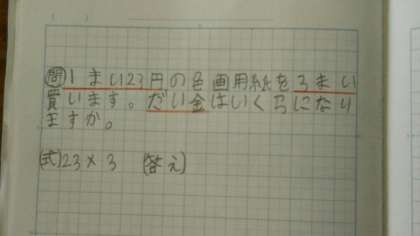 問 1まい23円の色画用紙を3まい
買います。だい金はいくらになり
ますか。
(式)23×3 (答え)